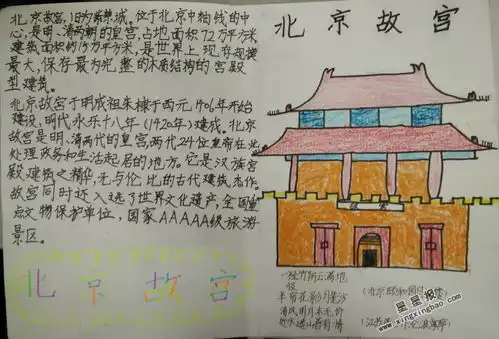 北京故宫,旧称紫禁城。位于北京中轴线的中
心,是明、清两朝的皇宫,占地面积72万平方米,
建筑面积约15万平方米,是世界上现存规模
最大,保存最为完整的木质结构的宫殿
型建筑。
北京故宫于明成祖朱棣于西元1406年开始
建设,明代永乐十八年(1420年)建成。北京
故宫是明、清两代的皇宫,两代24位皇帝在此
处理政务和生活起居的地方。它是汉族宫
殿建筑之精华,无与伦比的古代建筑杰作。
故宫同时还入选了世界文化遗产,全国重
点文物保护单位,国家AAAAA级旅游
景区。
北京故宫
北京故宫
故宫
一径竹阴云满地
半帘花影月笼纱
(北京颐和园
清风明月本无价
近水远山皆有情
(江苏
星星报
www.xingxingbao.com